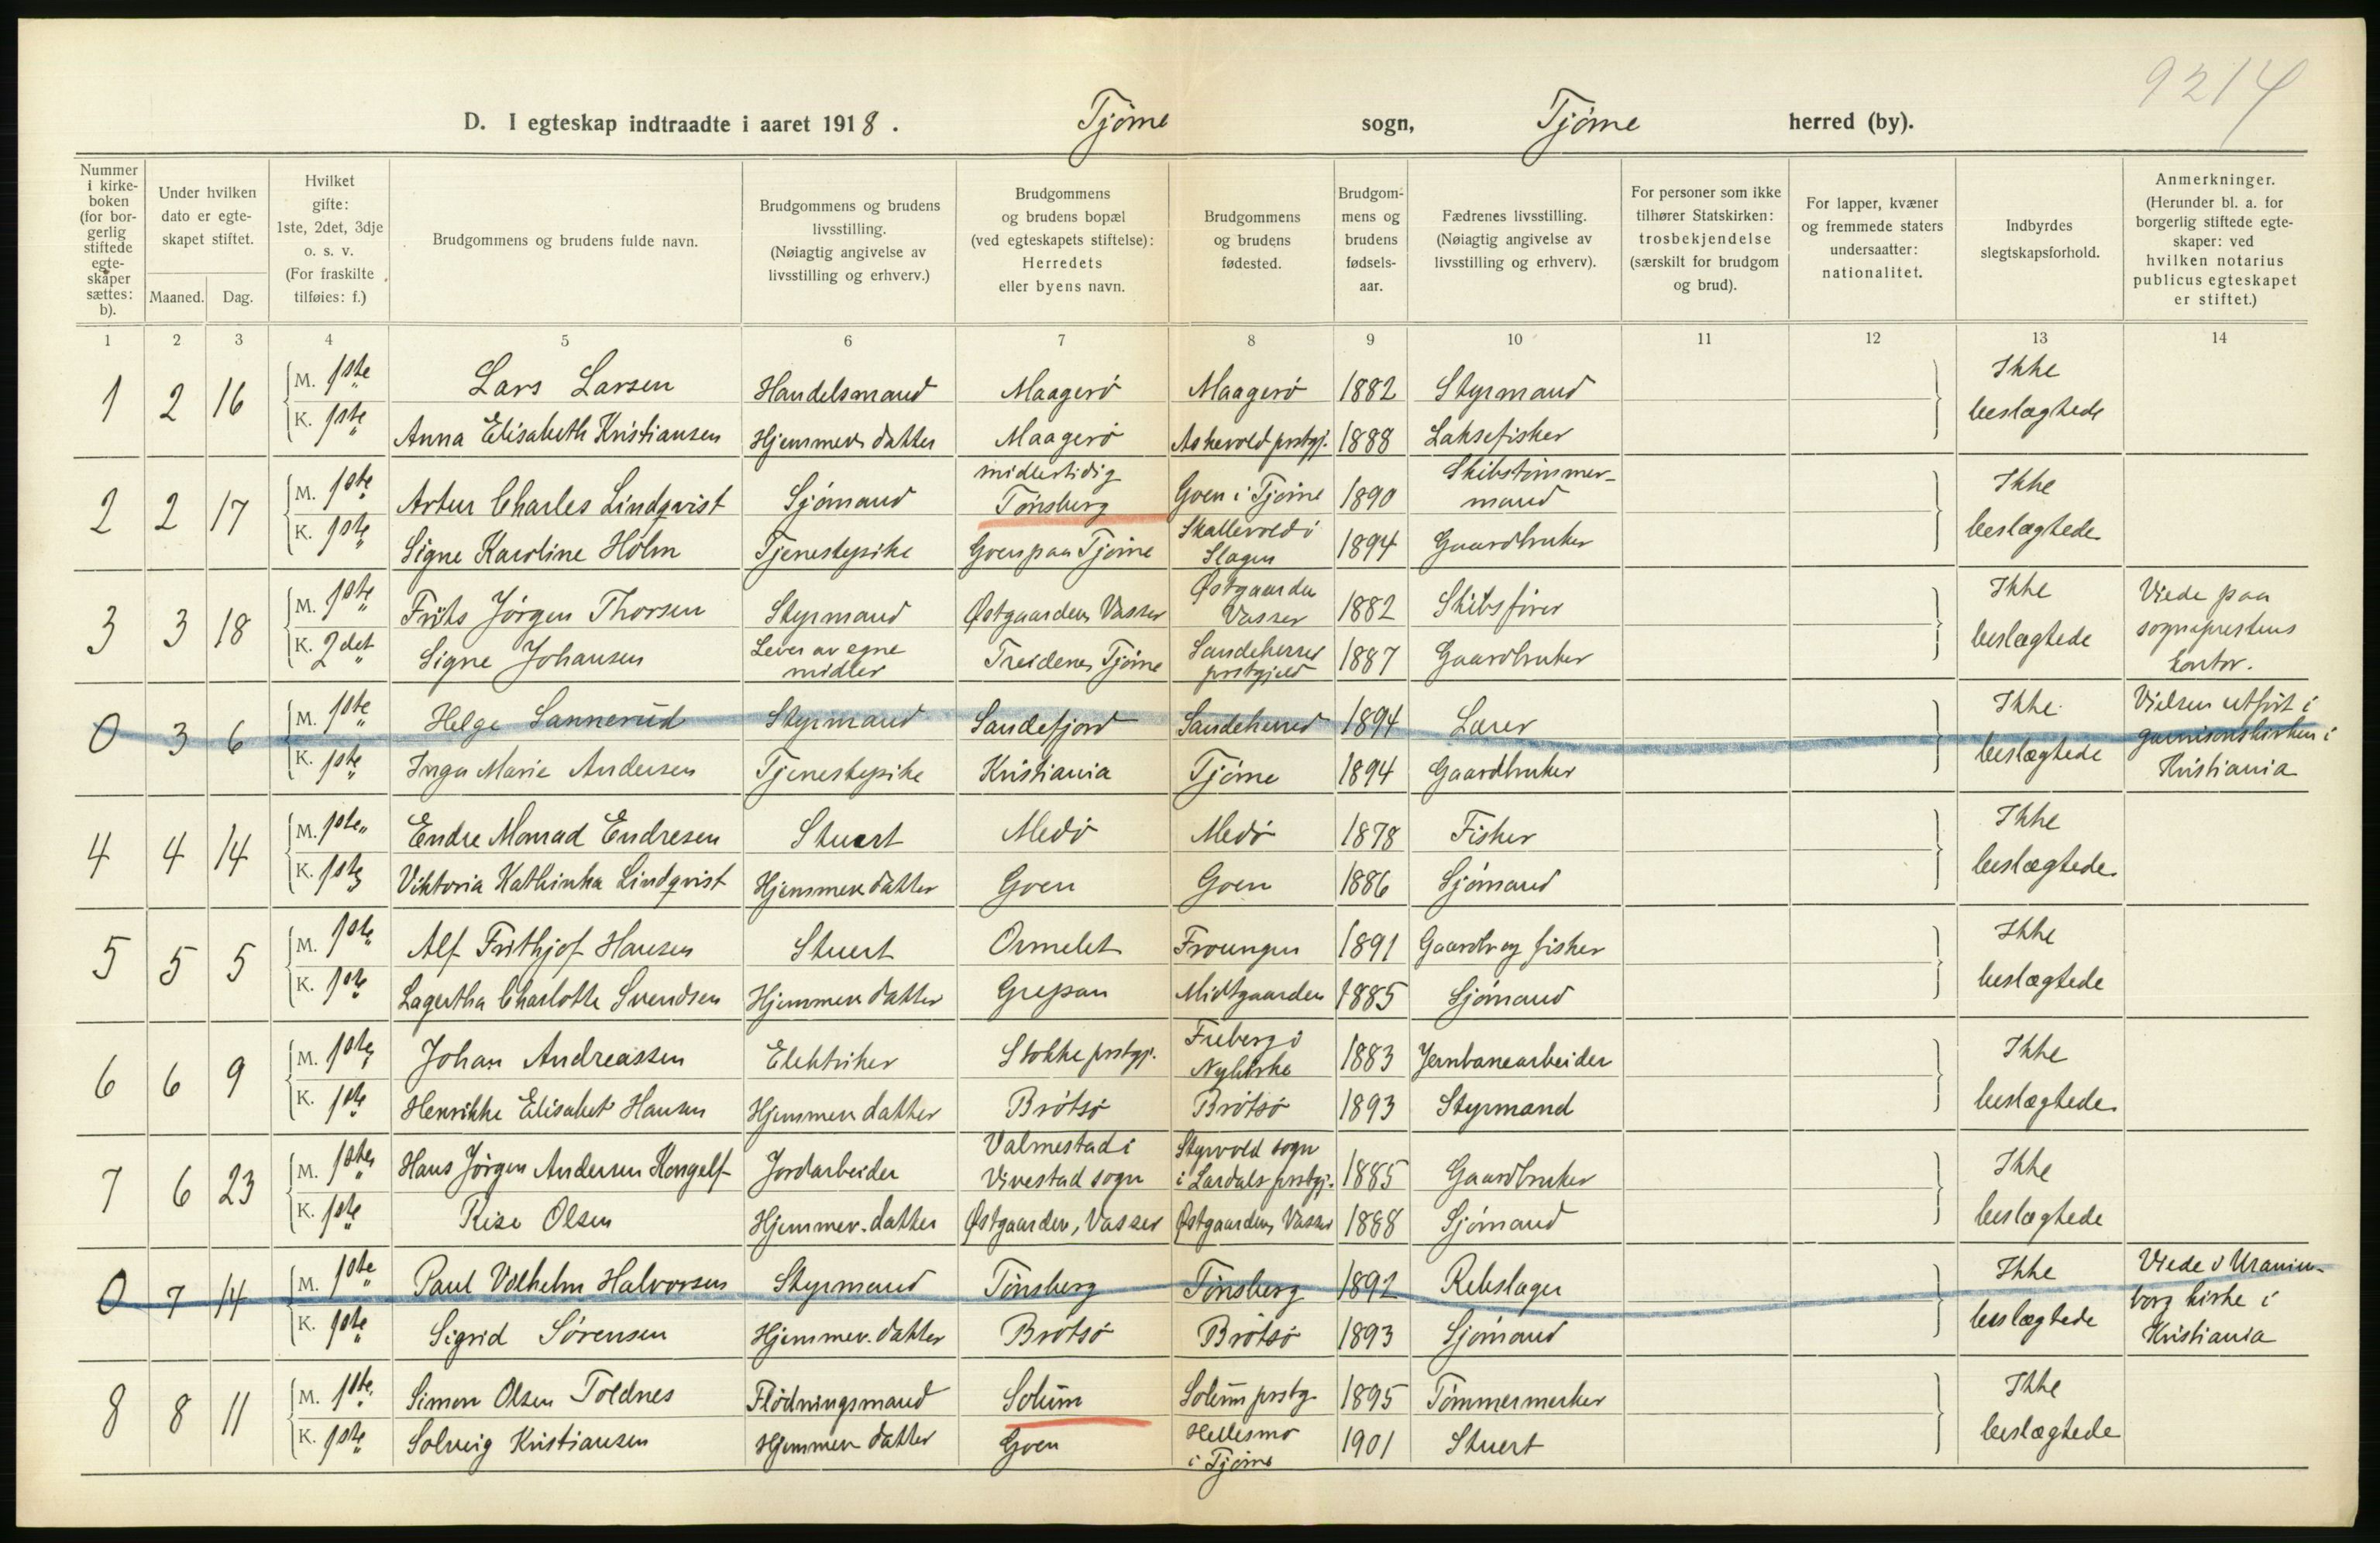 9214
D. I egteskap indtraadte i aaret 1918. Tjøme sogn, Tjøme herred (by).
Nummer i kirkeboken (for borgerlig stiftede egteskaper sættes: b).
Under hvilken dato er egteskapet stiftet.
Maaned. Dag.
Hvilket gifte: 1ste, 2det, 3dje o. s. v. (For fraskilte tilføies: f.)
Brudgommens og brudens fulde navn.
Brudgommens og brudens livsstilling. (Nøiagtig angivelse av livsstilling og erhverv.)
Brudgommens og brudens bopæl (ved egteskapets stiftelse): Herredets eller byens navn.
Brudgommens og brudens fødested.
Brudgommens og brudens fødselsaar.
Fædrenes livsstilling. (Nøiagtig angivelse av livsstilling og erhverv).
For personer som ikke tilhører Statskirken: trosbekjendelse (særskilt for brudgom og brud).
For lapper, kvæner og fremmede staters undersaatter: nationalitet.
Indbyrdes slegtskapsforhold.
Anmerkninger. (Herunder bl. a. for borgerlig stiftede egteskaper: ved hvilken notarius publicus egteskapet er stiftet.)
1 2 3 4 5 6 7 8 9 10 11 12 13 14
1 2 16 M. 1ste Lars Larsen Handelsmand Maagerö Maagerö 1882 Styrmand Ikke
K. 1ste Anna Elisabeth Kristiansen Hjemmev. datter Maagerö Askevold prstgj. 1888 Laksefisker beslægtede
2 2 17 M. 1ste Artur Charles Lindqvist Sjömand midlertidig Tönsberg Goen i Tjöme 1890 Skibstömmermand Ikke
K. 1ste Signe Karoline Holm Tjenestepike Goen paa Tjöme Skallevold i Slagen 1894 Gaardbruker beslægtede
3 3 18 M. 1ste Frits Jörgen Thorsen Styrmand Østgaarden, Vasser Østgaarden Vasser 1882 Skibsförer Ikke Viede paa
K. 2det Signe Johansen Lever av egne midler Treidene, Tjöme Sandeherred prstgjeld 1887 Gaardbruker beslægtede sogneprestens kontor.
0 3 6 M. 1ste Helge Sannerud Styrmand Sandefjord Sandeherred 1894 Lærer Ikke Vielsen utfört i
K. 1ste Inga Marie Andersen Tjenestepike Kristiania Tjöme 1894 Gaardbruker beslægtede garnisonskirken i Kristiania
4 4 14 M. 1ste Endre Monrad Endresen Stuert Medö Medö 1878 Fisker Ikke
K. 1ste Viktoria Kathinka Lindqvist Hjemmev. datter Goen Goen 1886 Sjömand beslægtede.
5 5 5 M. 1ste Alf Frithjof Hansen Stuert Ormelet 1891 Gaardbr og fisker Ikke
K. 1ste Lagertha Charlotte Svendsen Hjemmev. datter Grepan Midtgaarden 1885 Sjömand beslægtede
6 6 9 M. 1ste Johan Andreassen Elektriker Stokke prstgj. Freberg i Nykirke 1883 Jernbanearbeider Ikke
K. 1ste Henrikke Elisabet Hansen Hjemmev. datter Brötsö Brötsö 1893 Styrmand beslægtede.
7 6 23 M. 1ste Hans Jörgen Andersen Kongelf Jordarbeider Valmestad i Vivestad sogn Styrvold sogn i Lardals prstgj. 1885 Gaardbruker Ikke
K. 1ste Olsen Hjemmev. datter Østgaarden, Vasser Østgaarden, Vasser 1888 Sjömand beslægtede
0 7 14 M. 1ste Paul Vilhelm Halvorsen Styrmand Tönsberg Tönsberg 1892 Rebslager Ikke Viede i Uranienborg kirke i
K. 1ste Sigrid Sörensen Hjemmev. datter Brötsö Brötsö 1893 Sjömand beslægtede Kristiania
8 8 11 M. 1ste Simon Olsen Toldnes Flödningsmand Solum Solum prstg. 1895 Tömmermerker Ikke
K. 1ste Solveig Kristiansen Hjemmev. datter Goen Hellesmo i Tjöme 1901 Stuert beslægtede